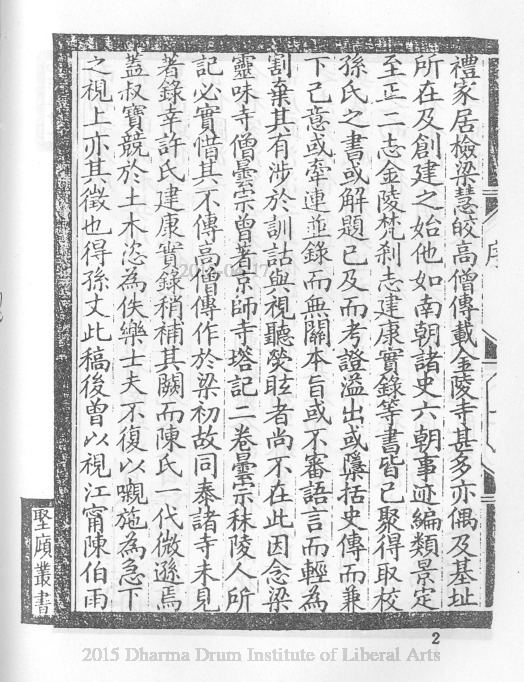 禮家居檢梁慧皎高僧傳載金陵寺甚多亦偶及基址
所在及創建之始他如南朝諸史六朝事迹編類景定
至正二志金陵梵剎志建康實錄等書皆已聚得取校
孫氏之書或解題已及而考證溢出或檃括史傳而兼
下己意或牽連並錄而無關本旨或不審語言而輕為
割棄其有涉於訓詁與視聽熒眩者尚不在此因念梁
靈味寺僧曇宗曾著京師寺塔記二卷曇宗秣陵人所
記必實惜其不傳高僧傳作於梁初故同泰諸寺未見
著錄幸許氏建康實錄稍補其闕而陳氏一代微遜焉
蓋叔寶競於土木恣為佚樂士夫不復以嚫施為急下
之視上亦其徵也得孫丈此稿後曾以視江甯陳伯雨
序
聖廎叢書
2
2015 Dharma Drum Institute of Liberal Arts